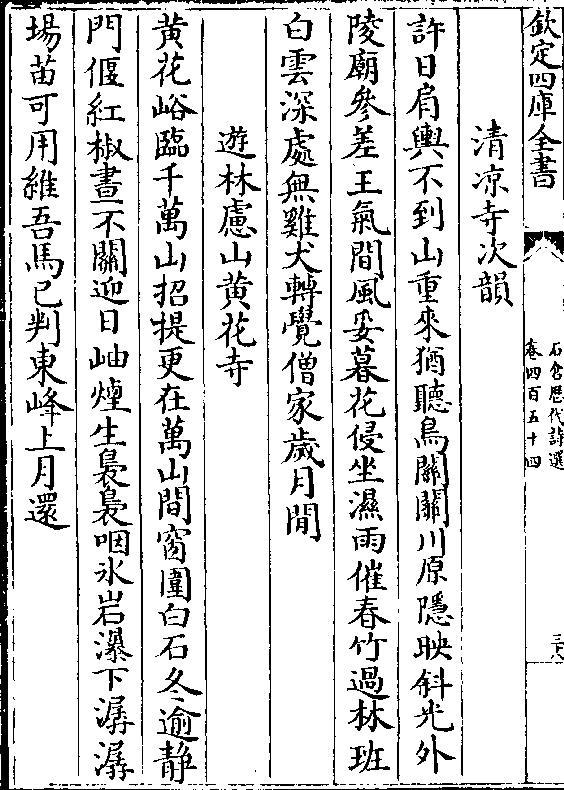 欽定四庫全書
石倉歷代詩選
卷四百五十四
三六
清凉寺次韻
許日肩輿不到山重來猶聽鳥關關川原隱映斜光外
陵廟參差王氣間風妥暮花侵坐濕雨催春竹過林班
白雲深處無雞犬轉覺僧家歲月閒
遊林慮山黄花寺
黄花峪臨千萬山招提更在萬山間窗圍白石冬逾静
門偃紅椒晝不關迎日岫煙生裊裊咽氷岩瀑下潺潺
場苗可用維吾馬已判東峰上月還